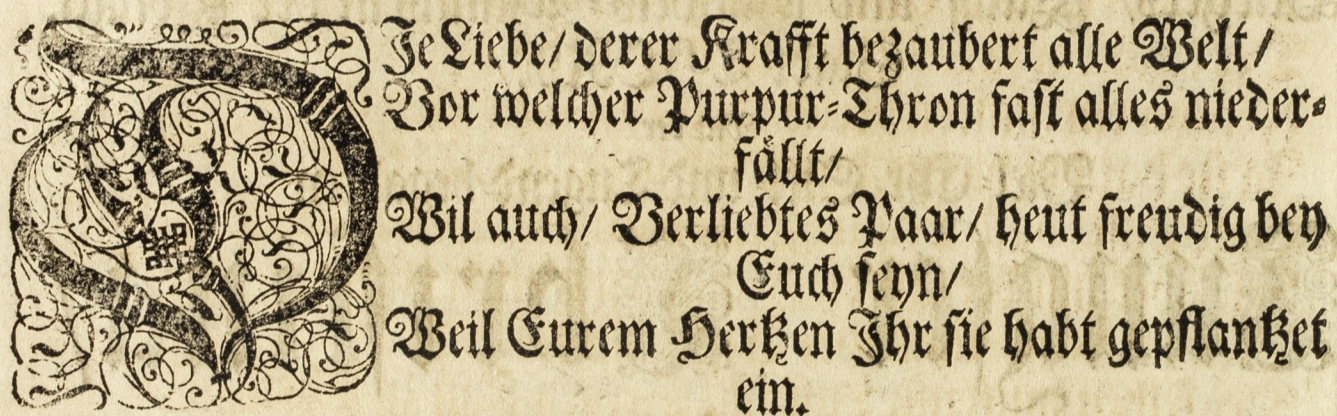 DIe Liebe/ derer Krafft bezaubert alle Welt/
Vor welcher Purpur-Thron fast alles nieder-
fällt/
Wil auch/ Verliebtes Paar/ heut freudig bey
Euch seyn/
Weil Eurem Hertzen Ihr sie habt gepflantzet
ein.